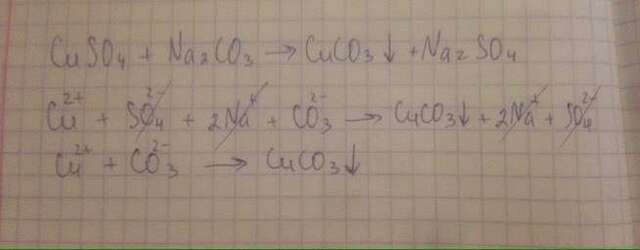 CuSO₄ + Na₂CO₃ → CuCO₃↓ + Na₂SO₄
Cu²⁺ + SO₄²⁻ + 2Na⁺ + CO₃²⁻ → CuCO₃↓ + 2Na⁺ + SO₄²⁻
Cu²⁺ + CO₃²⁻ → CuCO₃↓